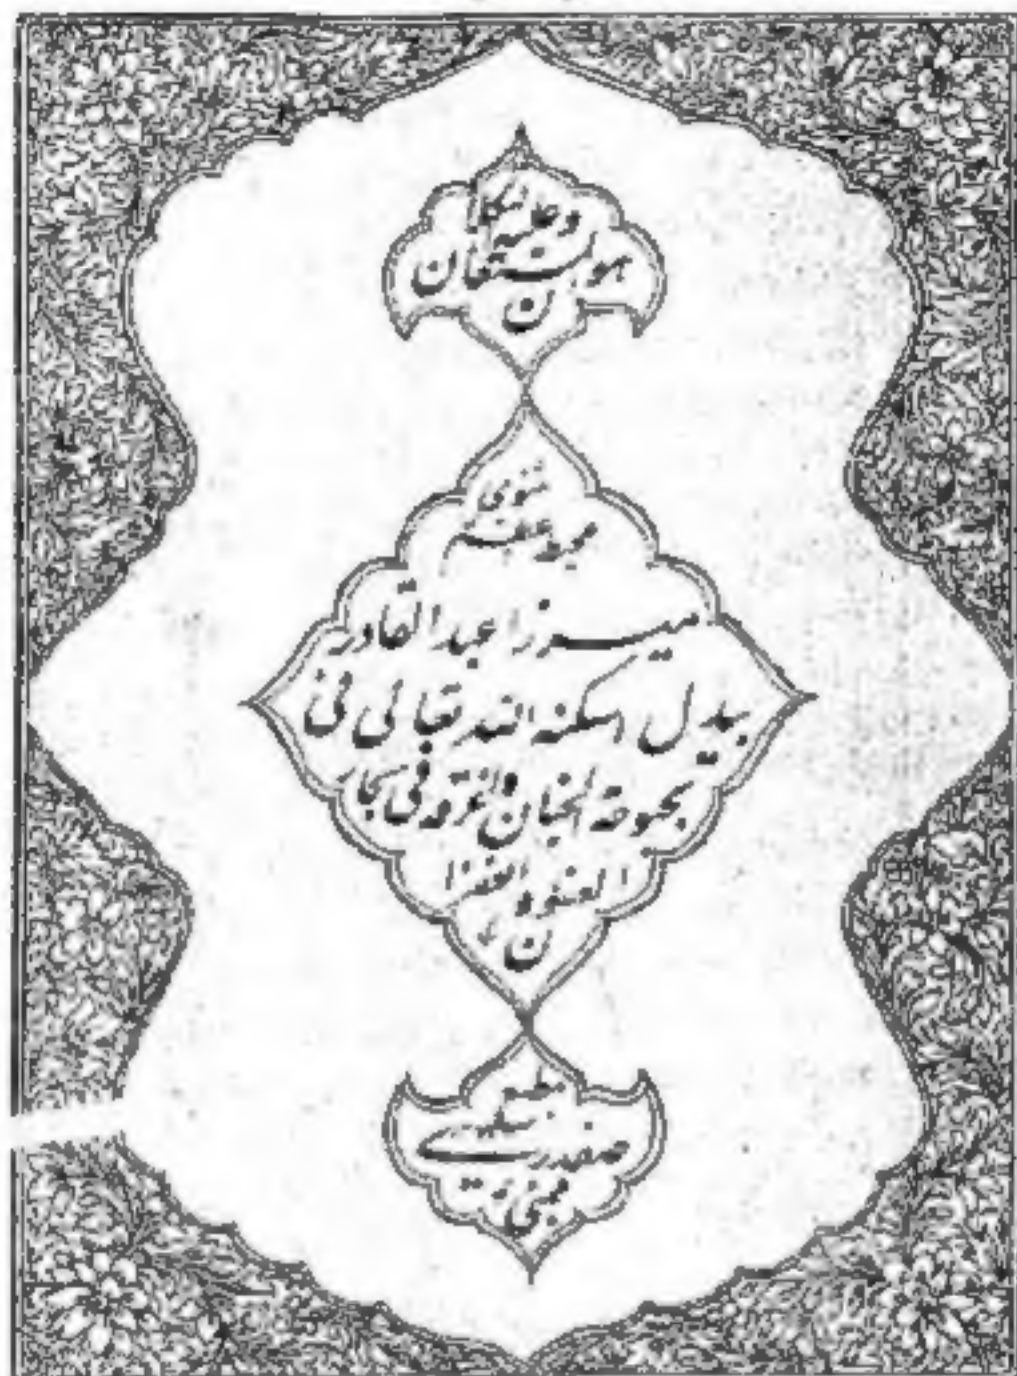 هو المستعان
وعلیه التکلان
مثنوی
محیط اعظم
میرزا عبدالقادر
بیدل اسکنه الله تعالی فی
بحبوحة الجنان واغرقه فی بحار
العفو والغفران
مطبع
صفدری
بمبئی